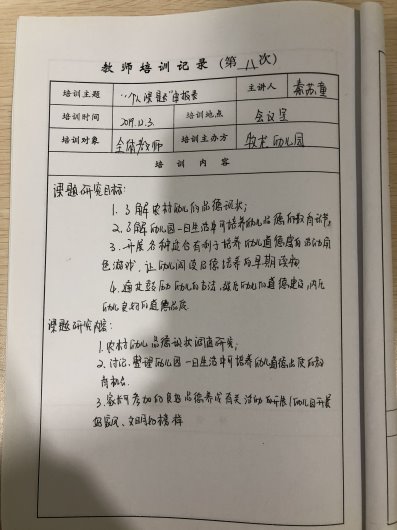 教师培训记录(第 八 次)
培训主题 "个人课题"审报表 主讲人
培训时间 2019.12.3. 培训地点 会议室
培训对象 全体教师 培训主办方 幼儿园
培训内容
课题研究目标:
1. 了解农村幼儿的品德现状;
2. 了解幼儿园一日生活中可培养幼儿品德的教育环节。
3. 开展各种适合有利于培养幼儿道德度的活动角
色游戏,让幼儿园设品德培养的早期读物
4. 通过鼓励幼儿的方法,
幼儿良好的道德品质.
课题研究内容:
1. 农村幼儿品德现状调查研究;
2. 讨论、整理幼儿园一日生活中可培养幼儿道德品质的教
育机会.
3. 家长可参加的良好品德养成有关活动的开展(幼儿园开展
好家风、文明的榜样